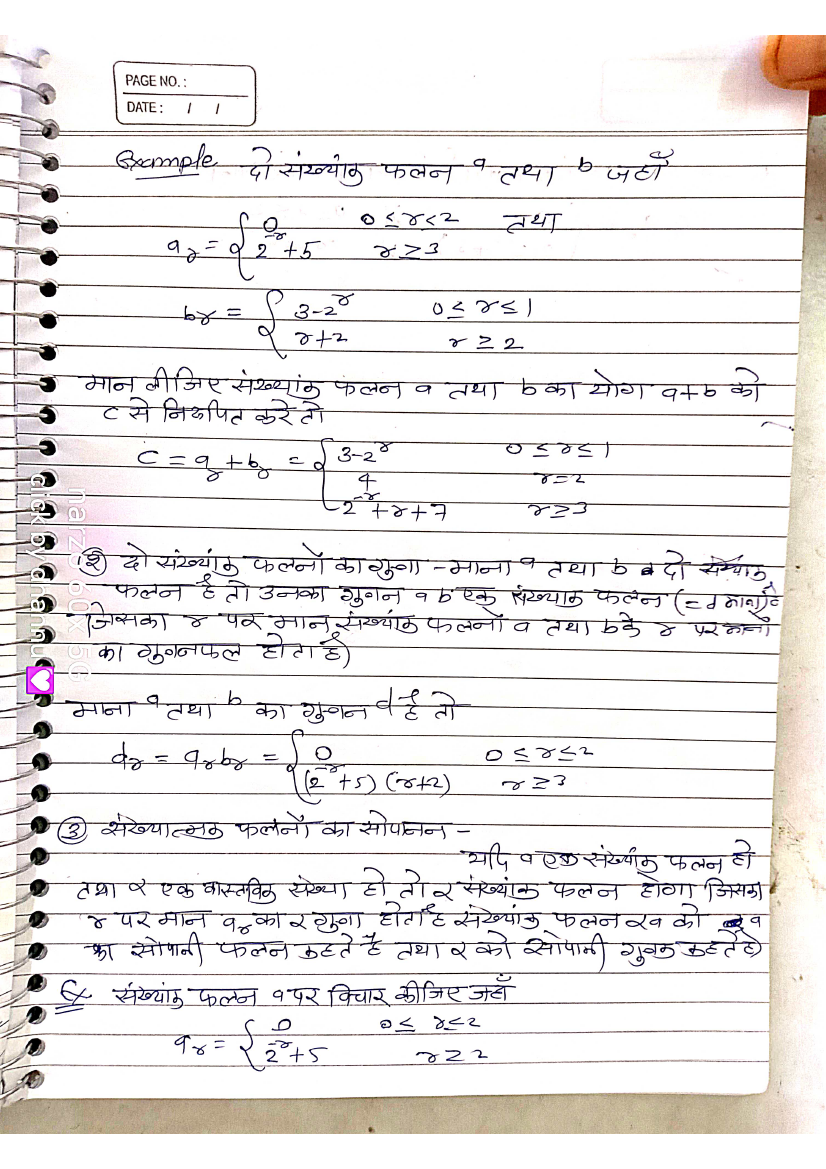 PAGE NO.:
DATE: / /
Example दो संख्यांक फलन a तथा b जहाँ
a_r = { 0   0 ≤ r < 2   तथा
2^-r + 5   r ≥ 3
b_r = { 3-2^r   0 ≤ r ≤ 1
r+2   r ≥ 2
मान लीजिए संख्यांक फलन a तथा b का योग a+b को
C से निरूपित करे तो
C = a_r + b_r = { 3-2^r   0 ≤ r ≤ 1
4   r=2
2^-r + r + 7   r ≥ 3
② दो संख्यांक फलनों का गुणा - माना a तथा b दो संख्यांक
फलन है तो उनका गुणन a b एक संख्यांक फलन (= d माना) है
जिसका r पर मान संख्यांक फलनों a तथा b के r पर मानों
का गुणनफल होता है)
माना a तथा b का गुणन d है तो
d_r = a_r b_r = { 0   0 ≤ r ≤ 2
(2^-r + 5) (r+2)   r ≥ 3
③ संख्यात्मक फलनों का सोपानन -
यदि a एक संख्यांक फलन हो
तथा α एक वास्तविक संख्या हो तो α संख्यांक फलन होगा जिसका
r पर मान a_r का α गुणा होता है संख्यांक फलन αa को a
का सोपानी फलन कहते हैं तथा α को सोपानी गुणक कहते है)
Ex संख्यांक फलन a पर विचार कीजिए जहाँ
a_r = { 0   0 ≤ r ≤ 2
2^-r + 5   r ≥ 2
narzo 60x 5G
click by dhannu